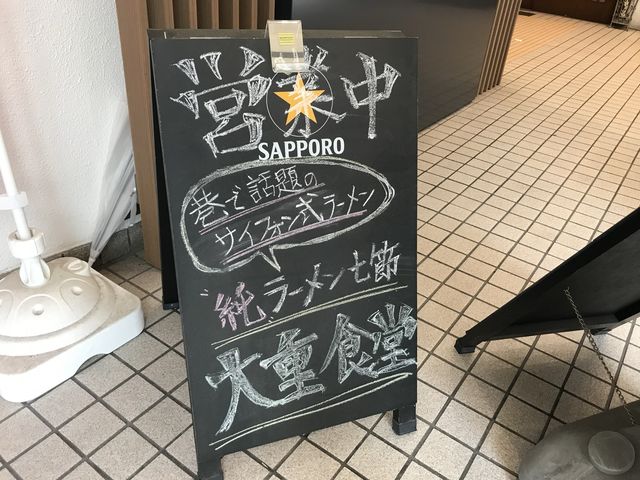 営業中
SAPPORO
巷で話題の
サイフォン式ラーメン
純ラーメン七節
大重食堂